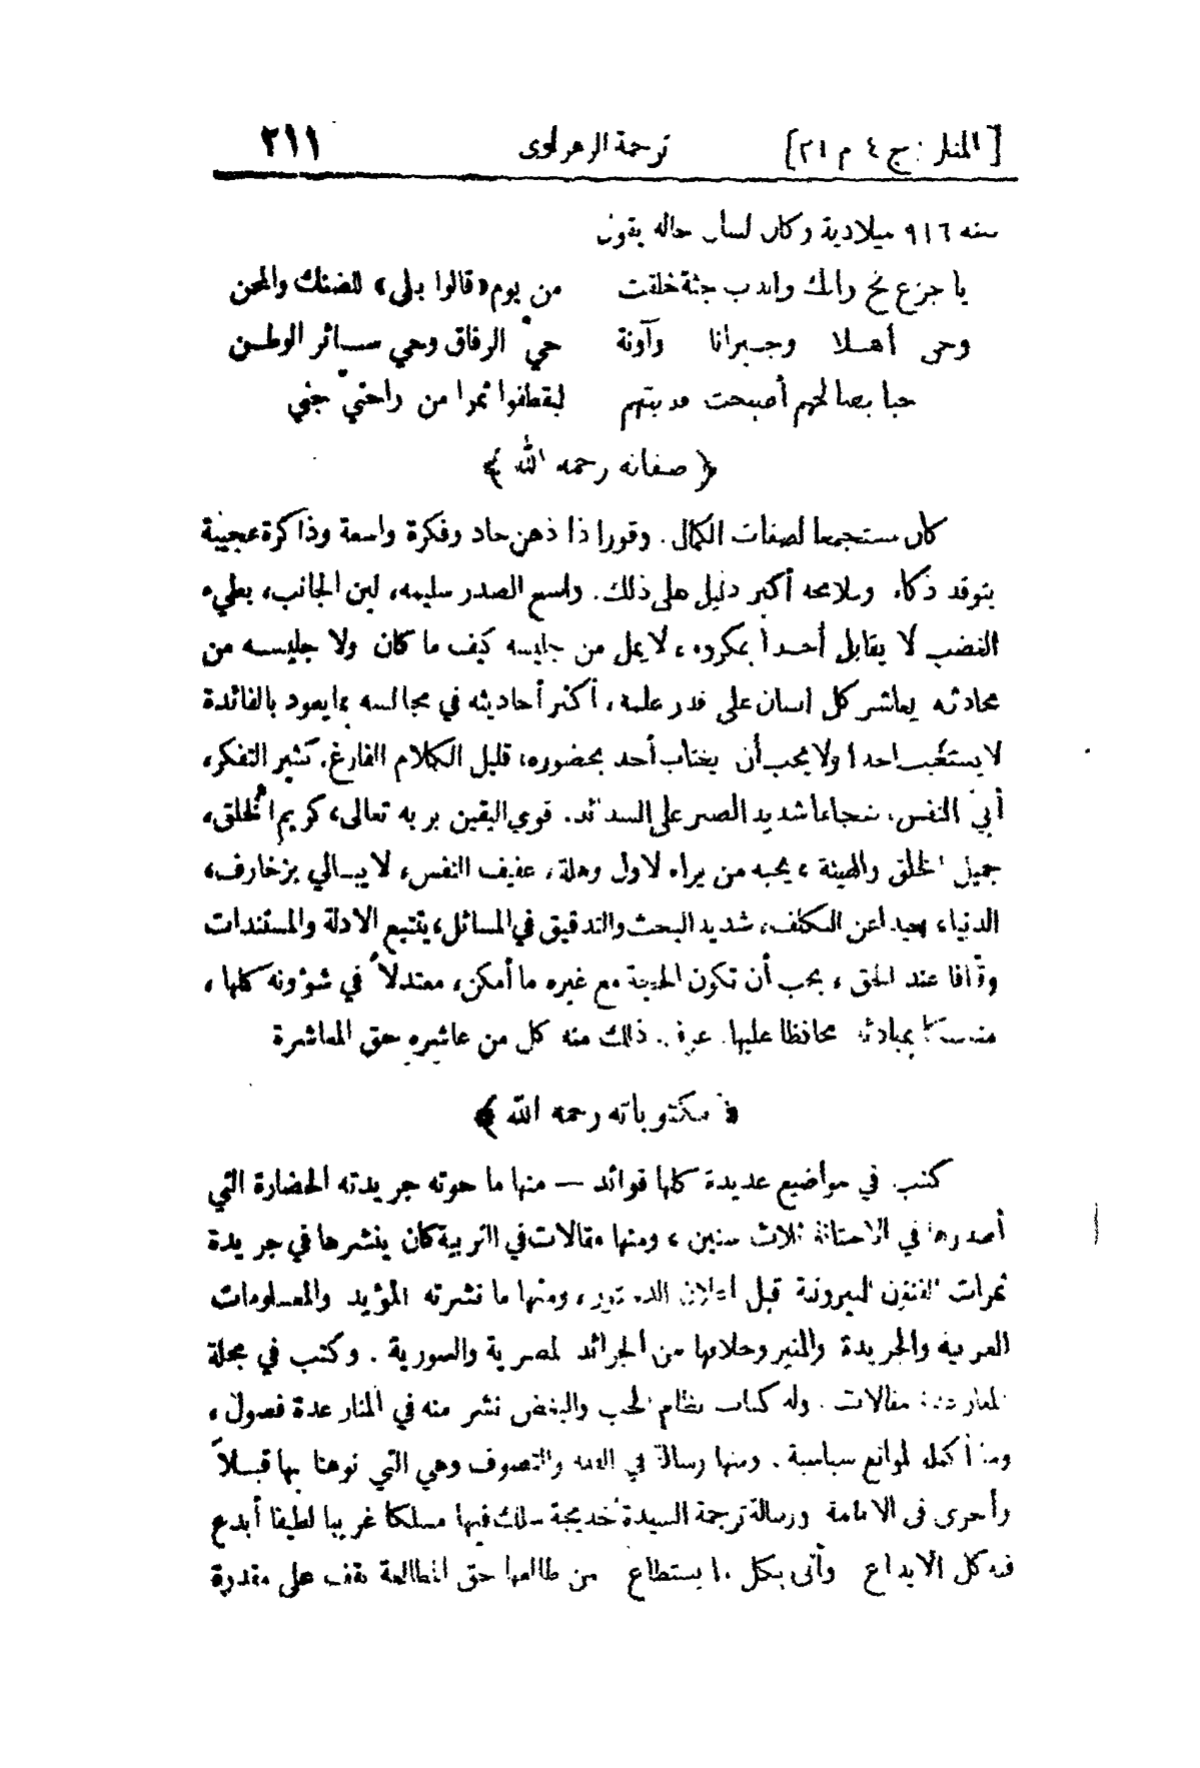 [ المنار : ج ٤ م ٢١ ] ترجمة الزهراوي ٢١١
سنة ٩١٦ ميلادية وكان لسان حاله يقول
يا جزع نح وابك واندب جثة خلقت من يوم «قالوا بلى» للضنك والمحن
وحي أهلا وجيرانا وآونة حيّ الرفاق وحي سائر الوطن
حبا بصالحهم أصبحت فديتهم ليقطفوا ثمرا من راحتيّ جني
﴿ صفاته رحمه الله ﴾
كان مستجمعا لصفات الكمال . وقورا ذا ذهن حاد وفكرة واسعة وذاكرة عجيبة
يتوقد ذكاء وملامحه أكبر دليل على ذلك. واسع الصدر سليمه، لين الجانب، بطيء
الغضب لا يقابل أحداً بمكروه ، لا يمل من جليسه كيف ما كان ولا جليسه من
محادثته يعاشر كل انسان على قدر علمه ، أكثر أحاديثه في مجالسه بما يعود بالفائدة
لا يستغيب احدا ولا يحب أن يغتاب أحد بحضوره، قليل الكلام الفارغ. كثير التفكر،
أبيّ النفس، شجاعا شديد الصبر على الشدائد. قوي اليقين بربه تعالى، كريم الخُلق،
جميل الخلق والهيئة ، يحبه من يراه لاول وهلة ، عفيف النفس، لا يبالي بزخارف،
الدنيا، بعيدا عن التكلف، شديد البحث والتدقيق في المسائل، يتتبع الادلة والمستندات
وقّافا عند الحق ، يحب أن تكون الحجة مع غيره ما أمكن، معتدلاً في شؤونه كلها ،
متمسكا بمبادئه محافظا عليها. عرف ذلك منه كل من عاشره حق المعاشرة
﴿ مكتوباته رحمه الله ﴾
كتب في مواضيع عديدة كلها فوائد — منها ما حوته جريدته الحضارة التي
أصدرها في الاستانة ثلاث سنين ، ومنها مقالات في التربية كان ينشرها في جريدة
ثمرات الفنون البيروتية قبل اعلان الدستور ، ومنها ما نشرته المؤيد والمعلومات
العربية والجريدة والمنير وخلافها من الجرائد المصرية والسورية . وكتب في مجلة
المنار عدة مقالات . وله كتاب نظام الحب والبغض نشر منه في المنار عدة فصول ،
وما أكمله لموانع سياسية . ومنها رسالة في الفقه والتصوف وهي التي نوهنا بها قبلاً
وأخرى في الامامة ورسالة ترجمة السيدة خديجة سلك فيها مسلكا غريبا لطيفا أبدع
فيه كل الابداع وأتى بكل ما يستطاع من طالعها حق المطالعة يقف على مقدرة